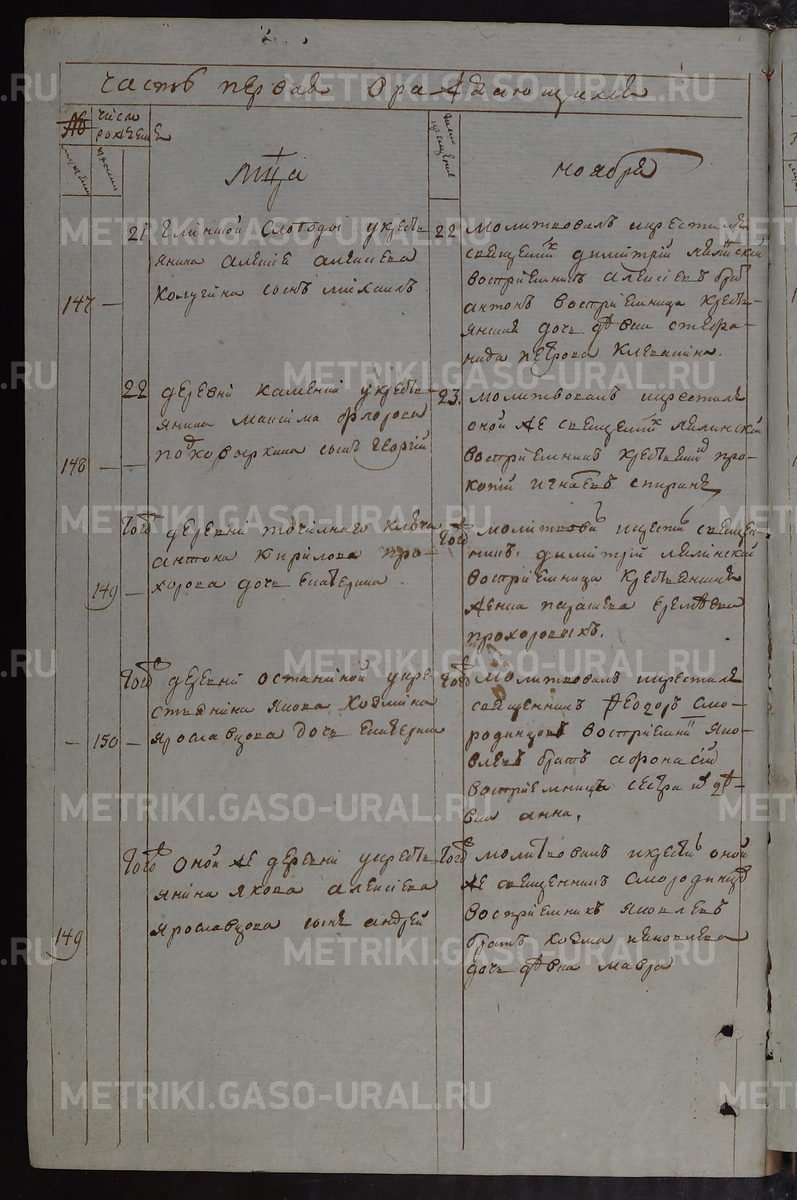 часть первая ораждающихся
№
число рождения
число крещения
мца
ноября
147
21
слободы укресть
янина алексея алексеева
сынъ михаилъ
22
молитвовалъ икрестилъ
священникъ димитрій
восприемникъ алексеевъ братъ
антонъ восприемница кресть
янская дочь девка стефа
нида петрова
148
22
деревни каменки укресть
янина максима флорова
подковыркина сынъ георгій
23
молитвовалъ икрестилъ
оной же священникъ лялинскій
восприемникъ крестьянинъ про
копій игнатьевъ спиринъ
149
того
деревни
антона кирилова про
хорова дочь екатерина
того
молитвовалъ икрестилъ священ
никъ димитрій лялинскій
восприемница крестьянина
жена парасковья еремеева
прохоровыхъ.
150
того
деревни останиной укре
стьянина якова козмина
ярославцова дочь екатерина
того
молитвовалъ икрестилъ
священникъ феодоръ смо
родинцовъ восприемникъ яко
влевъ братъ афонасій
восприемница сестра де
вка анна,
149
того
оной же деревни укресть
янина якова алексеева
ярославцова сынъ андрей
того
молитвовалъ икрестилъ оной
же священникъ смородинцовъ
восприемникъ яковлевъ
братъ козма
дочь девка мавра
METRIKI.GASO-URAL.RU